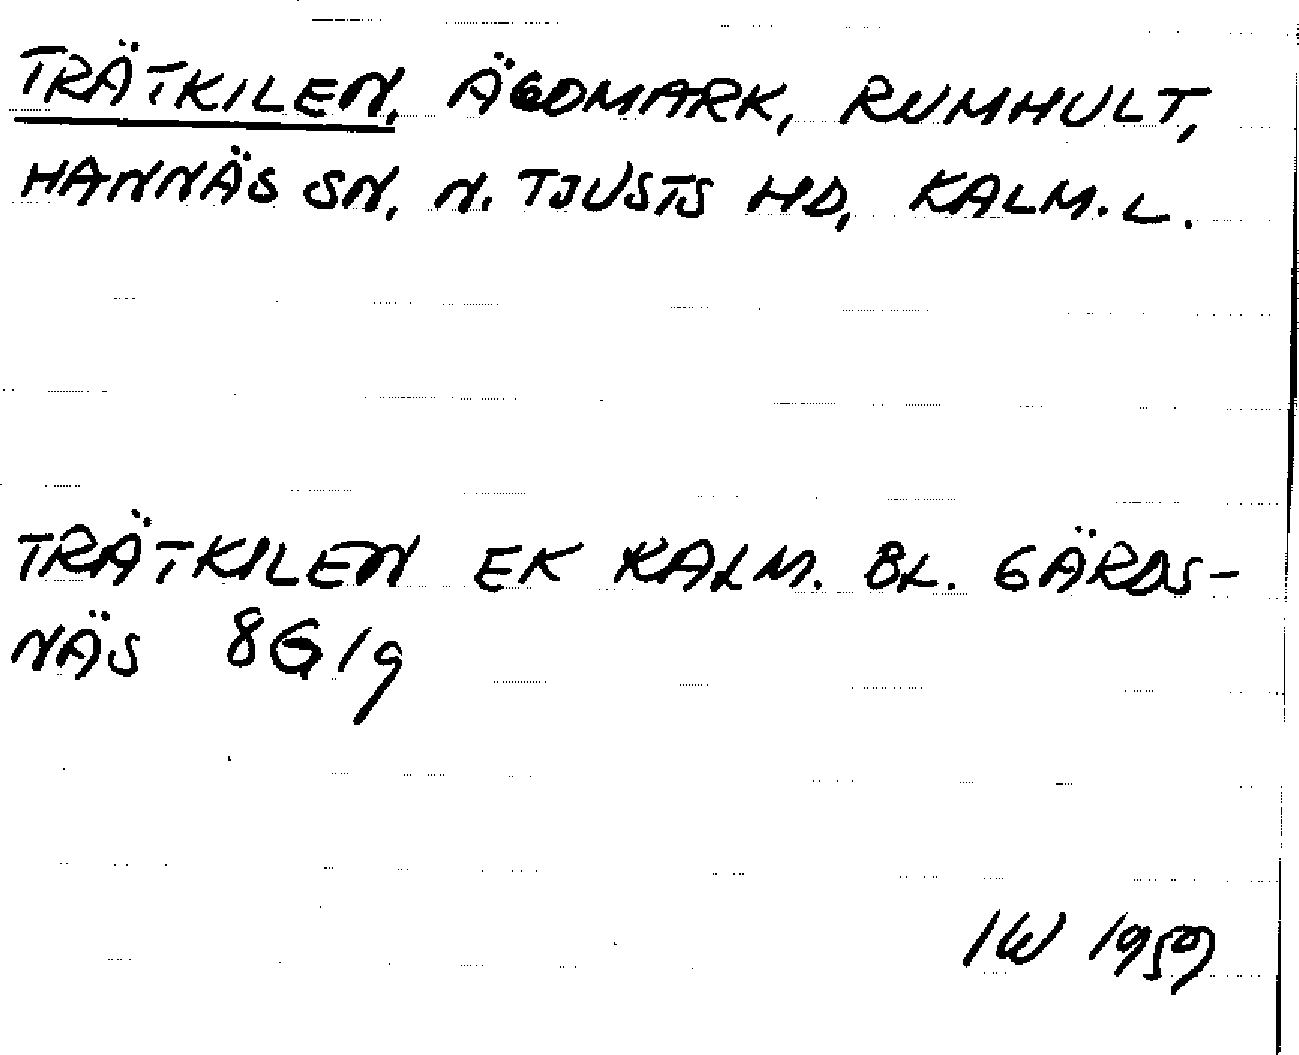 TRÄTKILEN, ÄGOMARK, RUMHULT,
HANNÄS SN, N. TJUSTS HD, KALM. L.
TRÄTKILEN EK KALM. BL. GÄRDS-
NÄS 8G/g
IW 1959